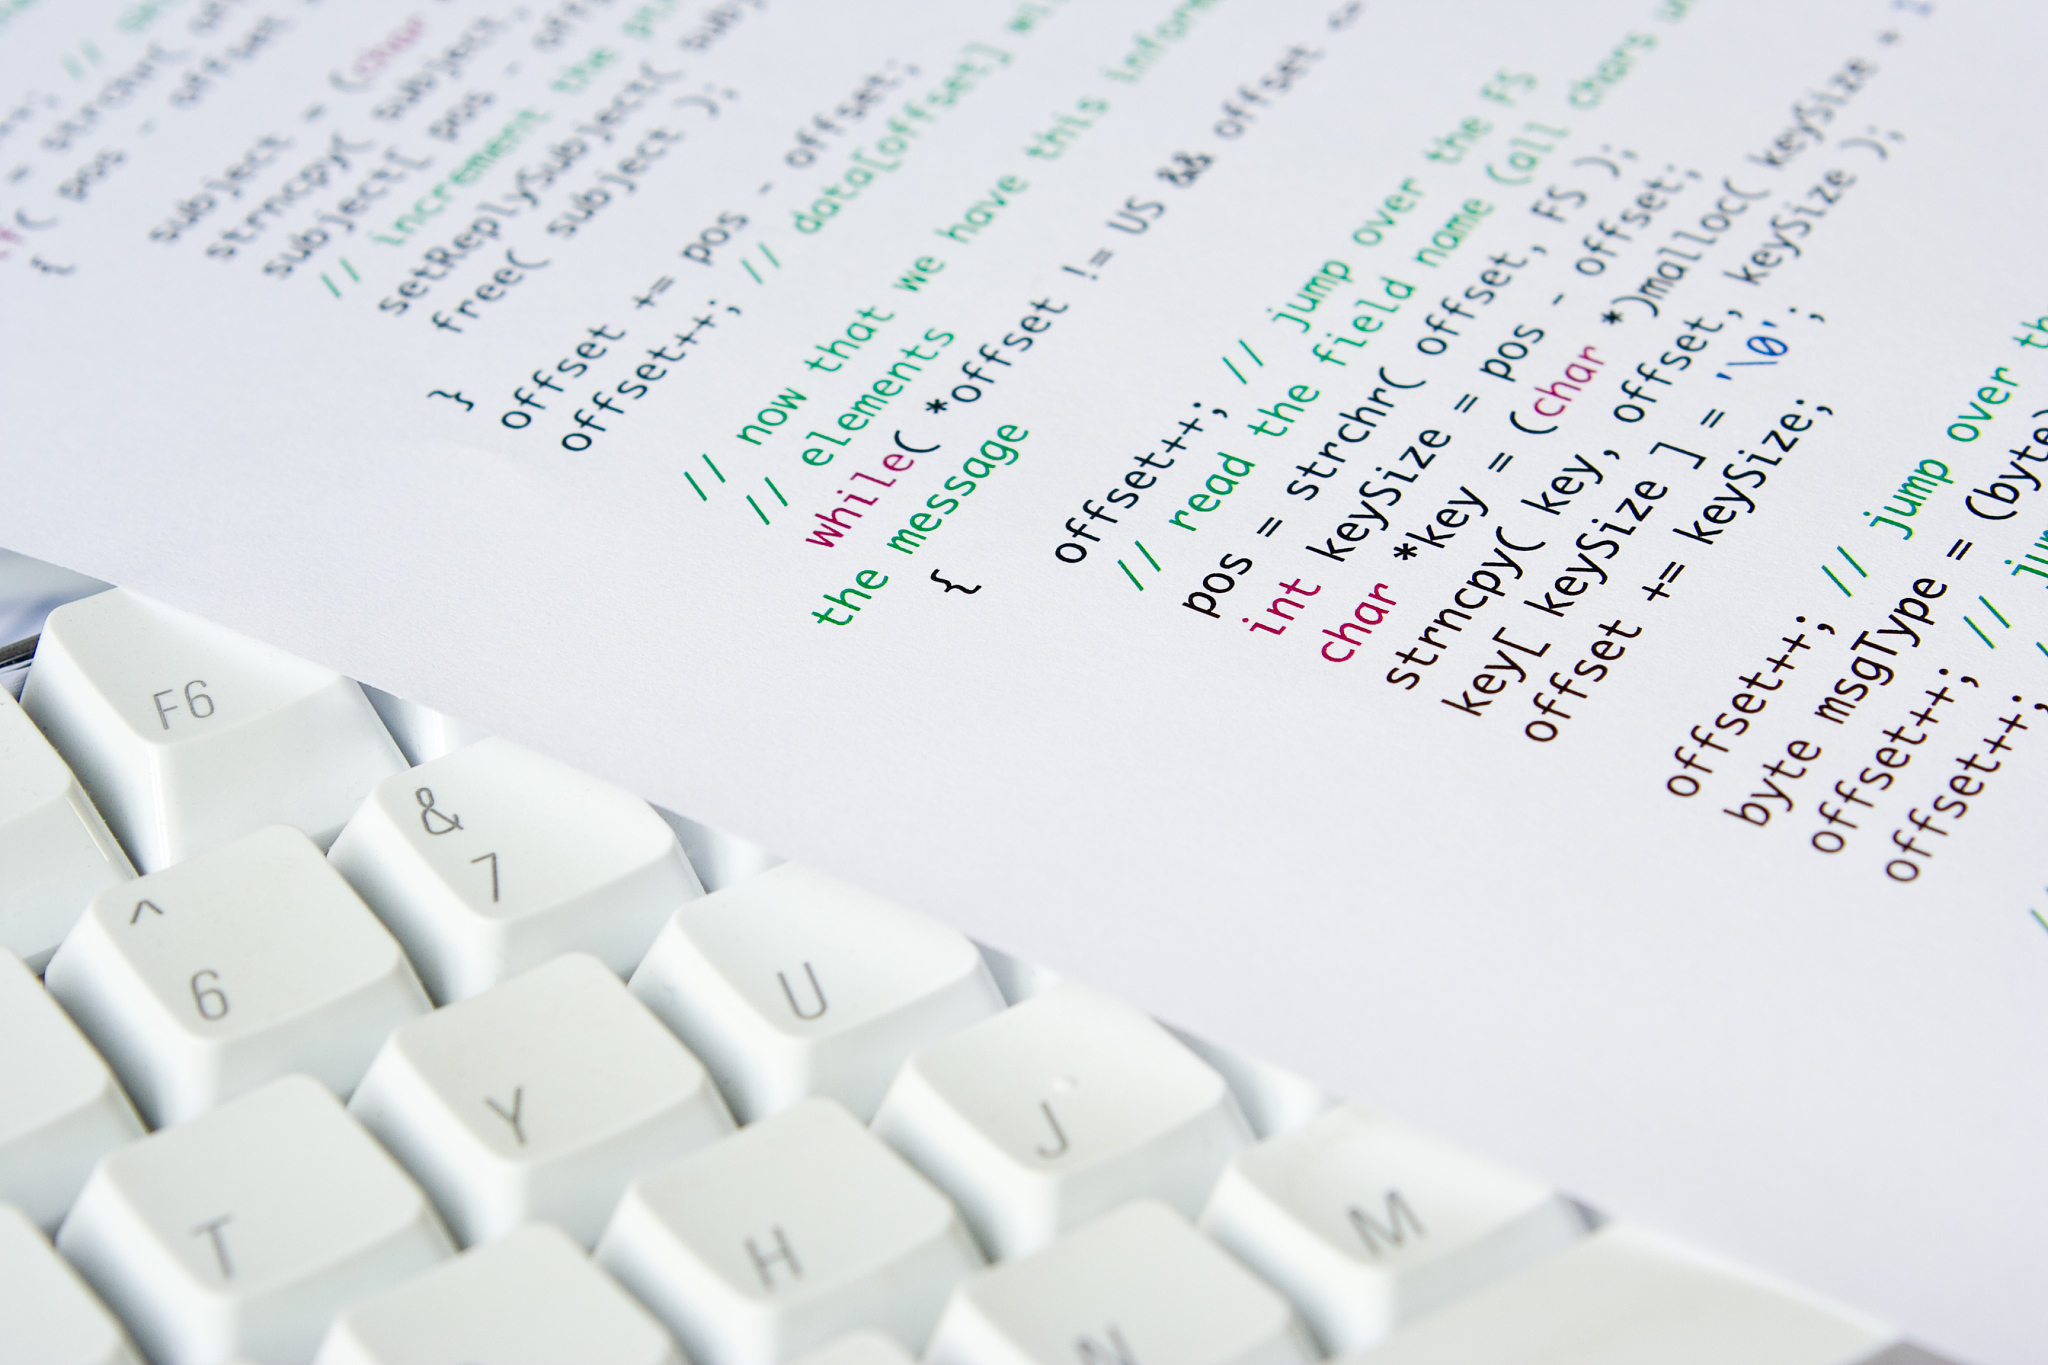 = strchr(
if( pos - offset
{
subject = (char
strncpy( subject,
subject[ pos -
// increment the
setReplySubject(
free( subject );
}
offset += pos - offset;
offset++; // data[offset]
// now that we have this
// elements
while( *offset != US && offset <
the message
{
offset++; // jump over the FS
// read the field name (all chars
pos = strchr( offset, FS );
int keySize = pos - offset;
char *key = (char *)malloc( keySize +
strncpy( key, offset, keySize );
key[ keySize ] = '\0';
offset += keySize;
offset++; // jump over
byte msgType = (byte)
offset++; //
offset++;
//
F6
&
7
^
6
U
Y
J
T
H
M
N